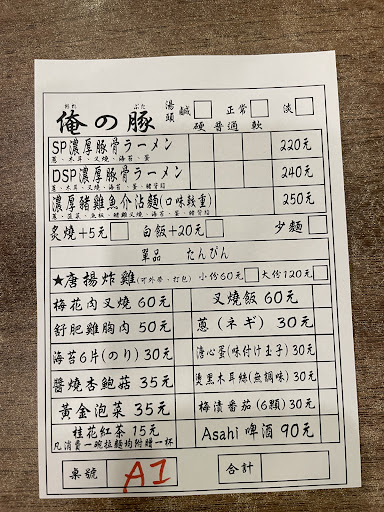 おれ ぶた
俺の豚 湯頭 鹹 正常 淡
硬 普通 軟
SP濃厚豚骨ラーメン 220元
蔥、木耳、叉燒、海苔、蛋
DSP濃厚豚骨ラーメン 240元
蔥、木耳、叉燒、海苔、蛋、豬背脂
濃厚豬雞魚介沾麵(口味較重) 250元
炙燒+5元 白飯+20元 少麵
單品 たんぴん
★唐揚炸雞(可外帶、打包) 小份60元 大份120元
梅花肉叉燒 60元 叉燒飯 60元
舒肥雞胸肉 50元 蔥(ネギ) 30元
海苔6片(のり) 30元 溏心蛋(味付け玉子) 30元
醬燒杏鮑菇 35元 燙黑木耳絲(無調味) 30元
黃金泡菜 35元 梅漬番茄(6顆) 30元
桂花紅茶 15元 Asahi 啤酒 90元
凡消費一碗拉麵均附贈一杯
桌號 A1 合計